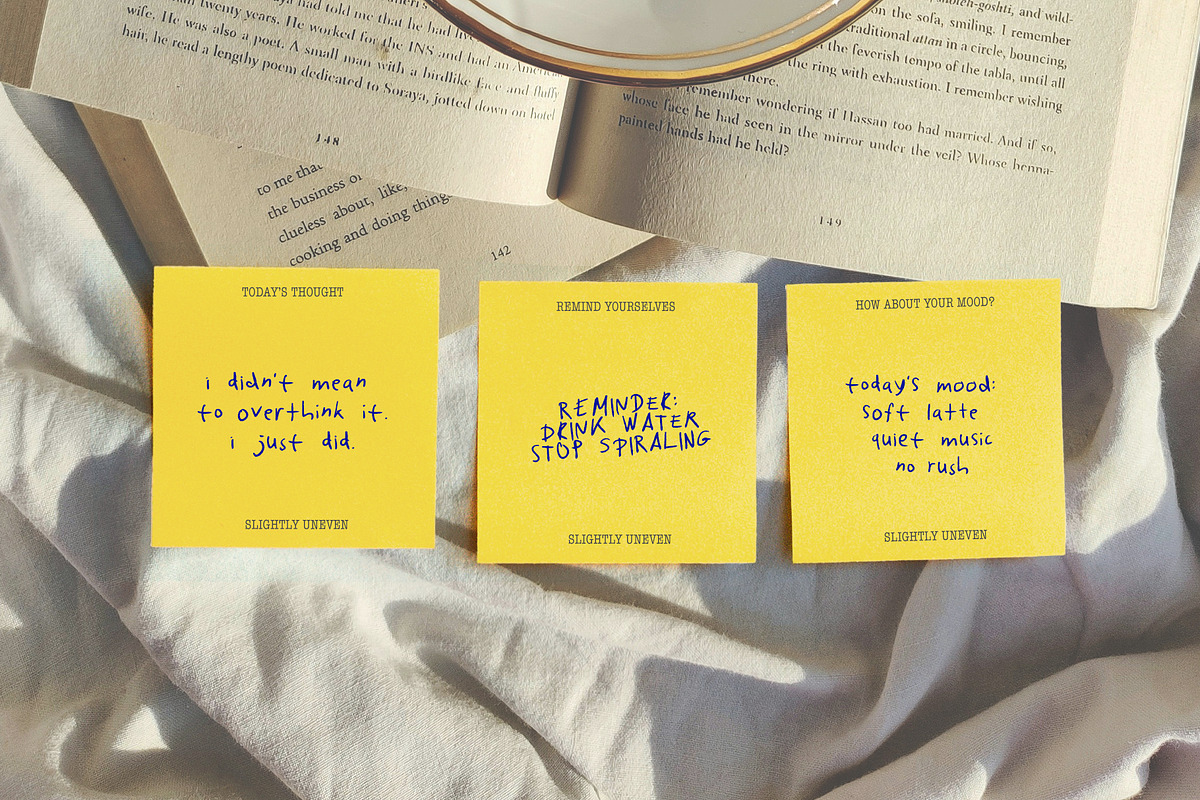 man twenty years. He worked for the INS and had an
wife. He was also a poet. A small man with a birdlike face and fluffy
hair, he read a lengthy poem dedicated to Soraya, jotted down on hotel
148
to me that
the business of
clueless about, like,
cooking and doing things
142
-goshti, and wild-
on the sofa, smiling. I remember
traditional attan in a circle, bouncing,
the feverish tempo of the tabla, until all
the ring with exhaustion. I remember wishing
there.
remember wondering if Hassan too had married. And if so,
whose face he had seen in the mirror under the veil? Whose henna-
painted hands had he held?
149
TODAY'S THOUGHT
i didn't mean
to overthink it.
i just did.
SLIGHTLY UNEVEN
REMIND YOURSELVES
REMINDER:
DRINK WATER
STOP SPIRALING
SLIGHTLY UNEVEN
HOW ABOUT YOUR MOOD?
today's mood:
soft latte
quiet music
no rush
SLIGHTLY UNEVEN